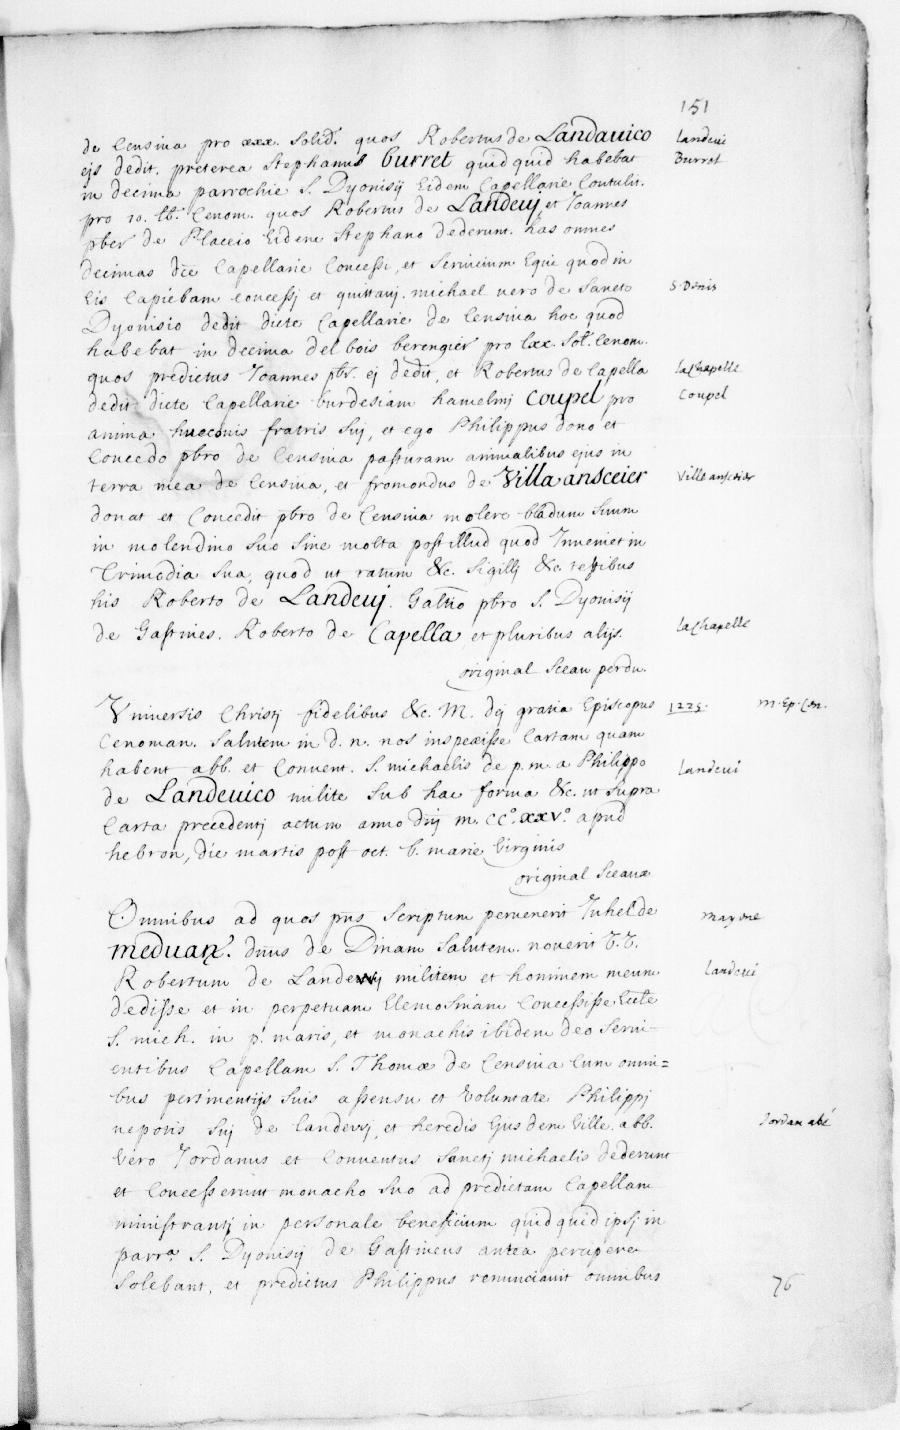 151
de Censiva pro xxx. Solid. quos Robertus de Landavico
Landevi
ejs dedit. preterea Stephanus burret quidquid habebat
Burret
in decima parrochie S. Dyonisij Eidem Capellarie Contulit.
pro 10. lb. Cenom. quos Robertus de Landevij et Joannes
pber de Placeio Eidem Stephano dederunt. has omnes
decimas dce Capellarie Concessi, et Servicium Equi quod in
Eis Capiebam concessj et quittavj. michael vero de Sancto
S. Denis
Dyonisio dedit dicte Capellarie de Censiva hoc quod
habebat in decima del bois berengier pro lxx. Sol. Cenom.
quos predictus Joannes pbr. ej dedit, et Robertus de Capella
la Chapelle
dedit dicte Capellarie burdesiam hamelinj Coupel pro
Coupel
anima hueconis fratris Suj, et ego Philippus dono et
Concedo pbro de Censiva pasturam animalibus ejus in
terra mea de Censiva, et fromondus de Villa ansceier
Ville ansceier
donat et Concedit pbro de Censiva molere bladum Suum
in molendino Suo Sine molta post illud quod Inveniet in
Trimodia Sua, quod ut ratum &c. Sigillj &c. testibus
his Roberto de Landevj. Galtio pbro S. Dyonisij
de Gastines. Roberto de Capella, et pluribus alijs.
la Chapelle
original Sceau perdu.
Universis Christj fidelibus &c. M. dej gratia Episcopus
1225.
M. Ep. Cen.
Cenoman. Salutem in d. n. nos inspexisse Cartam quam
habent abb. et Convent. S. michaelis de p. m. a Philippo
Landevi
de Landevico milite Sub hac forma &c. ut Supra
Carta precedentj actum anno dnj m. CC.° xxV.° apud
hebron, die martis post oct. b. marie Virginis
original Sceaux
Omnibus ad quos pns Scriptum pervenerit Juhel de
mayene
meduan. dnus de Dinam Salutem. noverit V. V.
Robertum de Landevij militem et hominem meum
Landevi
dedisse et in perpetuam Elemosinam Concessisse Eccle
S. mich. in p. maris, et monachis ibidem deo Servi-
entibus Capellam S. Thomæ de Censiva Cum omni=
bus pertinentijs Suis assensu et Voluntate Philippj
nepotis Suj de landevj, et heredis Ejusdem Ville. abb.
Jordan abé
Vero Jordanus et Conventus Sanctj michaelis dederunt
et Concesserunt monacho Suo ad predictam Capellam
ministrantj in personale beneficium quidquid ipsj in
parra. S. Dyonisij de Gastineus antea percipere
Solebant, et predictus Philippus renunciavit omnibus
76